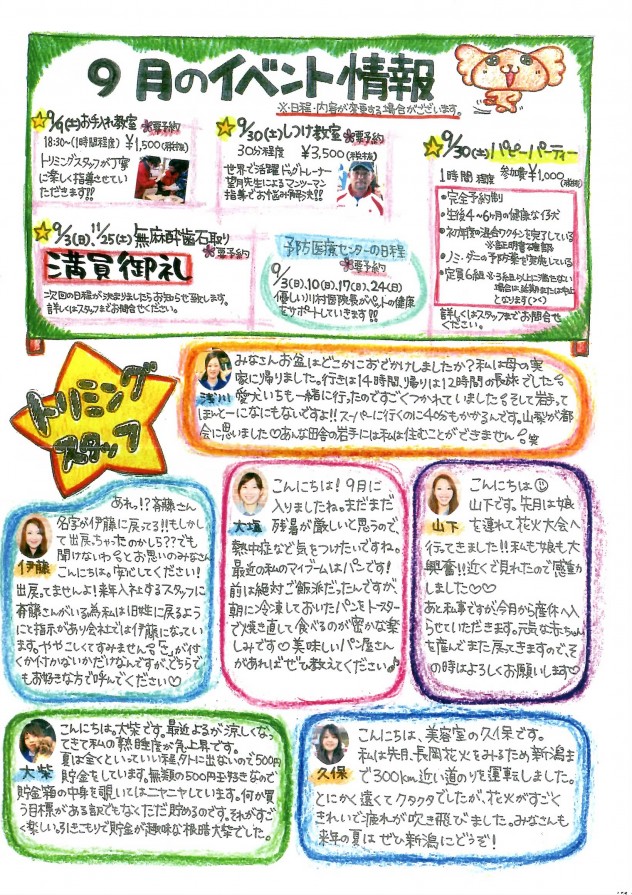 9月のイベント情報
※日程・内容が変更する場合がございます。
9/9(土)お手入れ教室 要予約
18:30~(1時間程度) ¥1,500(税抜)
トリミングスタッフが丁寧
に楽しく指導させていた
だきます!!
9/30(土)しつけ教室 要予約
30分程度 ¥3,500(税抜)
世界で活躍ドッグトレーナー
望月先生によるマンツーマン
指導でお悩み解決!!
9/30(土)パピーパーティー
1時間程度 参加費¥1,000(税抜)
・完全予約制
・生後4~6ヶ月の健康な仔犬
・初年度の混合ワクチンを完了している
※証明書確認
・ノミ・ダニの予防薬を実施している
・定員6組 ※3組以上に満たない
場合は、延期または中止
となります(><)
詳しくはスタッフまでお問合せ
ください。
9/3(日)、11/25(土)無麻酔歯石取り
要予約
満員御礼
次回の日程が決まりましたらお知らせ致します。
詳しくはスタッフまでお問合せください。
予防医療センターの日程
要予約
9/3(日)、10(日)、17(日)、24(日)
優しい川村副院長がペットの健康
をサポートしていきます!!
トリミング
スタッフ
浅川
みなさんお盆はどこかにおでかけしましたか?私は母の実
家に帰りました。行きは14時間、帰りは12時間の長旅でした。
愛犬いちも一緒に行ったのですごくつかれていました。そして岩手って
ほんとーになにもないですよ!!スーパーに行くのに40分もかかるんです。山梨が都
会に思いました♡あんな田舎の岩手には私は住むことができません。笑
伊藤
あれっ!?斉藤さん
名字が伊藤に戻ってる!!もしかし
て出戻っちゃったのかしら??でも
聞けないわ。とお思いのみなさん
こんにちは。安心してください!
出戻ってませんよ!来年入社するスタッフに
斉藤さんがいる為、私は旧姓に戻るよう
にて指示があり会社では伊藤になってい
ます。ややこしくてすみません。「さ」が付
くか付かないかだけなんですが、どちらで
もお好きな方で呼んでください♡
大塚
こんにちは!9月に
入りましたね。まだまだ
残暑が厳しいと思うので、
熱中症など気をつけたいですね。
最近の私のマイブームはパンです!
前は絶対ご飯派だったんですが、
朝に冷凍しておいたパンをトースター
で焼き直して食べるのが密かな楽
しみです♡美味しいパン屋さん
があればぜひ教えてください♪
山下
こんにちは☺
山下です。先月は娘
を連れて花火大会へ
行ってきました!!私も娘も大
興奮!!近くで見れたので感動
しました♡♡
あと私事ですが今月から産休へ入
らせていただきます。元気な赤ちゃん
を産んでまた戻てきますので、そ
の時はよろしくお願いします♡
大柴
こんにちは。大柴です。最近よるが涼しくなっ
てきて私の熟睡度が急上昇です。
夏は全くといっていい程外に出ないので500円
貯金をしています。無類の500円玉好きなので
貯金箱の中身を覗いてはニヤニヤしています。何か買
う目標がある訳でもなくただ貯めるのです。それがすご
く楽しい。引きこもりで貯金が趣味な根暗大柴でした。
久保
こんにちは、美容室の久保です。
私は先月、長岡花火をみるため新潟ま
で300km近い道のりを運転しました。
とにかく遠くてクタクタでしたが、花火がすごく
きれいで疲れが吹き飛びました。みなさんも
来年の夏はぜひ新潟にどうぞ!